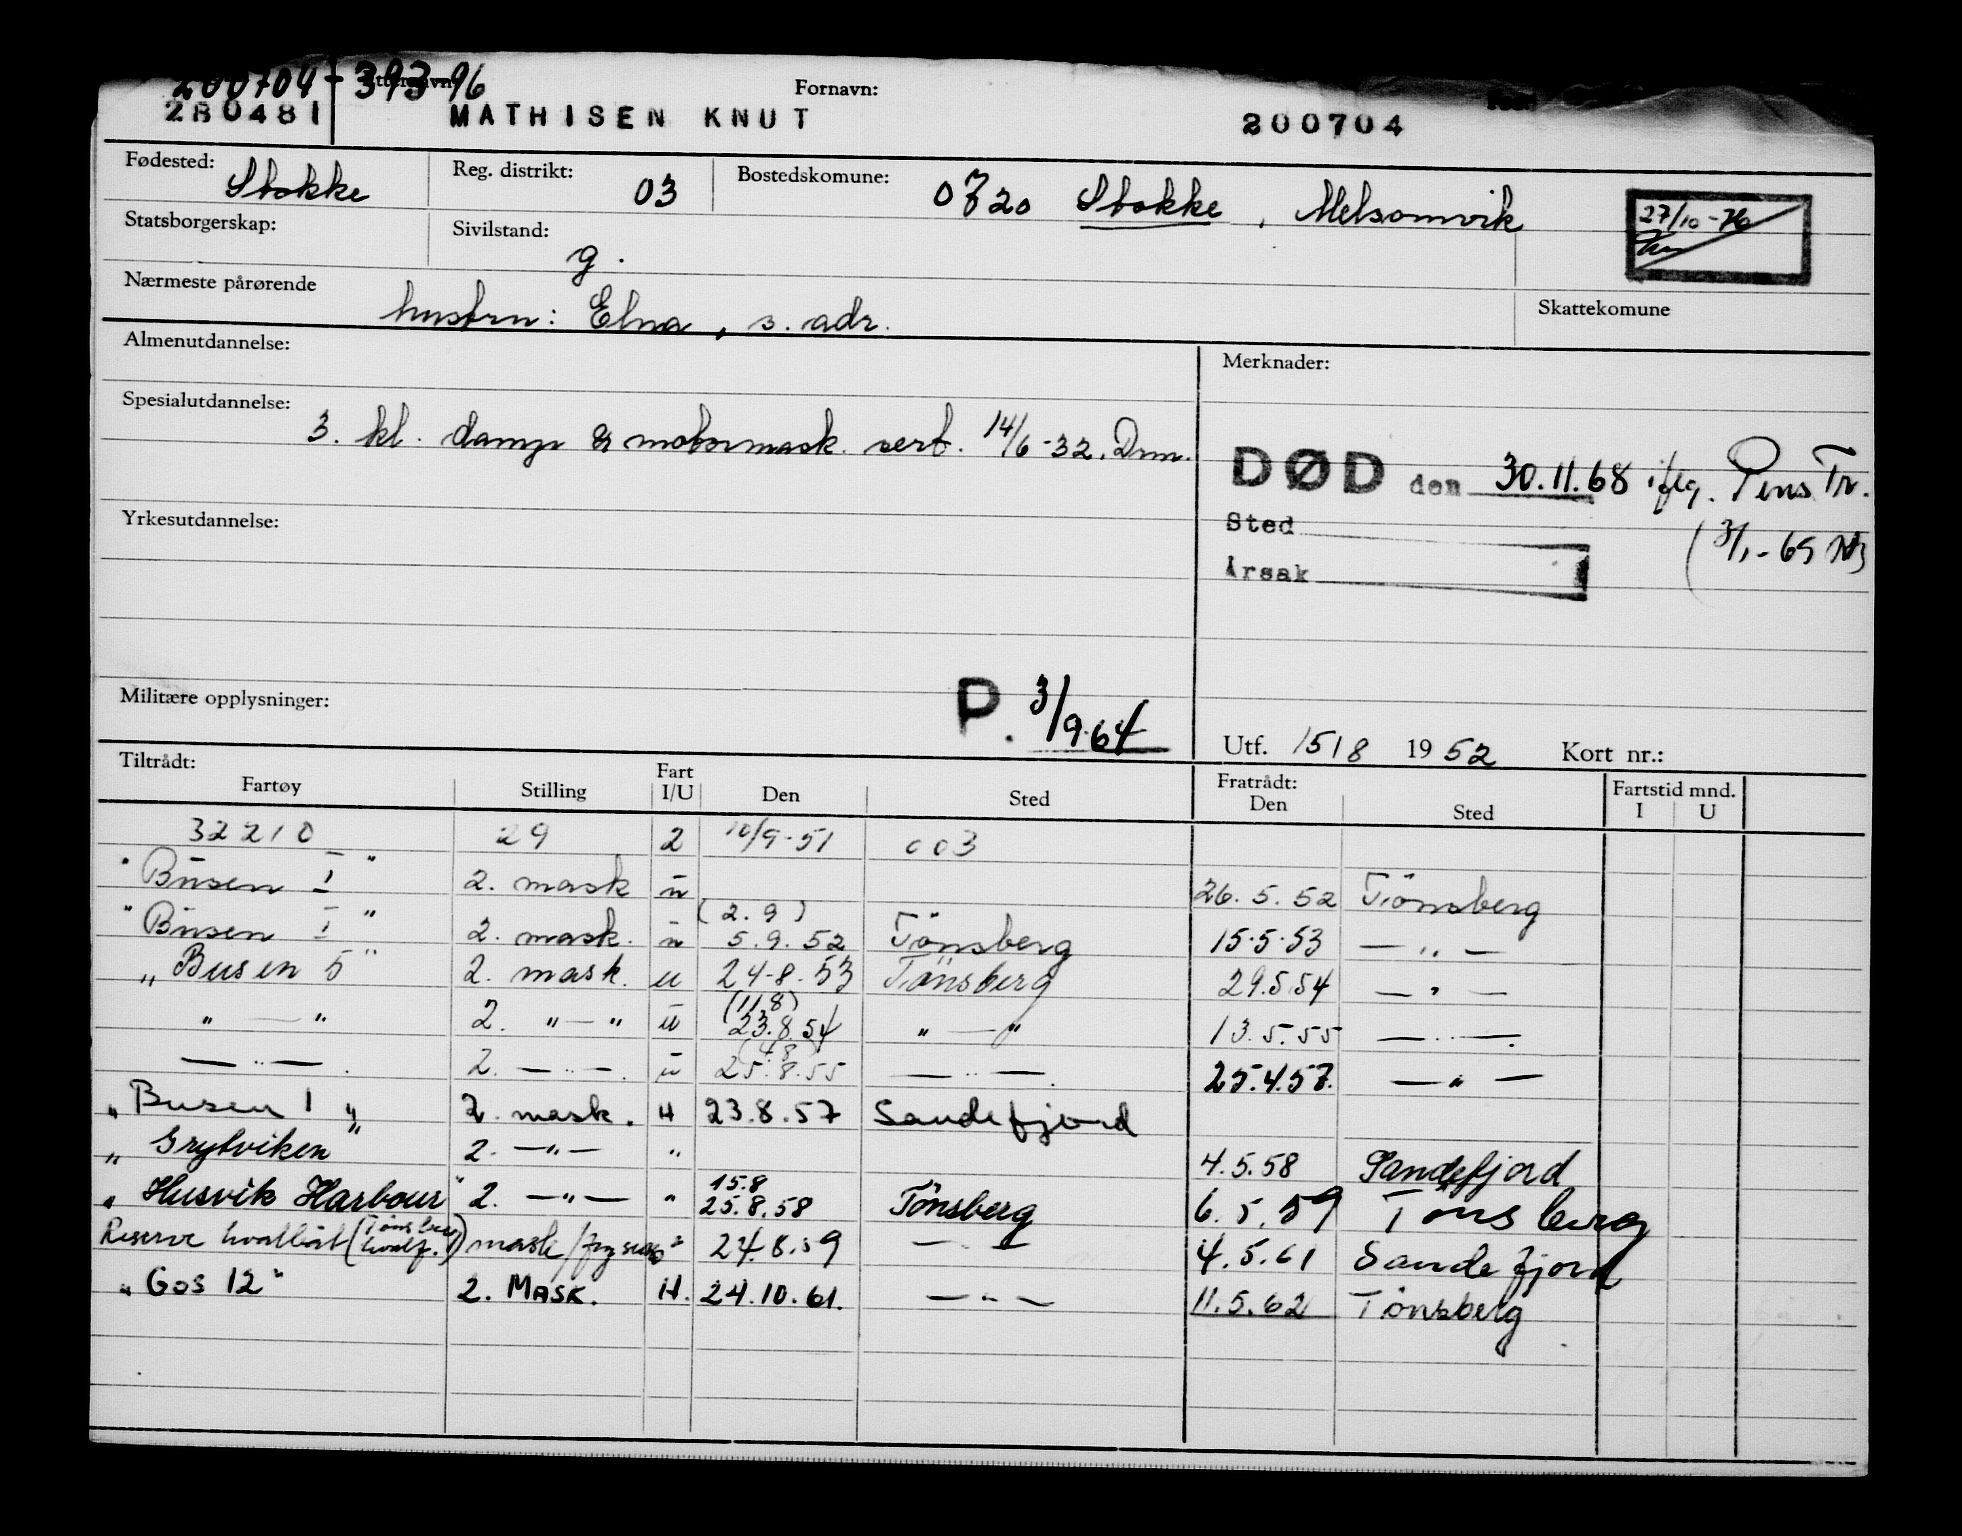 200704-39396
Fornavn:
280481 MATHISEN KNUT 200704
Fødested: Stokke Reg. distrikt: 03 Bostedskomune: 0720 Stokke, Melsomvik
27/10-76
Statsborgerskap: Sivilstand: g.
Nærmeste pårørende hustru: Elna, s. adr. Skattekomune
Almenutdannelse: Merknader:
Spesialutdannelse: 3. kl. damp & motormask. sert. 14/6-32. Drm.
DØD den 30.11.68 iflg. Pens Tr.
Yrkesutdannelse: Sted (3/1-69
Årsak
Militære opplysninger: P. 3/9.64
Utf. 1518 1952 Kort nr.:
Tiltrådt: Fartøy Stilling Fart I/U Den Sted Fratrådt: Den Sted Fartstid mnd. I U
32210 29 2 10/9-51 003
"Busen I" 2. mask u 26.5.52 Tönsberg
"Busen I" 2. mask. u (2.9) 5.9.52 Tönsberg 15.5.53 — " —
"Busen 5" 2. mask. u 24-8.53 Tönsberg 29.5.54 — " —
" — " 2. " — " u (11.8) 23.8.54 " — " 13.5.55 — " —
— " — 2. — " — u (4.8) 25.8.55 — " — 25.4.57. — " —
"Busen 1" 2. mask. u 23.8.57 Sandefjord
"Grytviken" 2. — " — " 4.5.58 Sandefjord
"Husvik Harbour" 2. — " — " 15.8 25.8.58 Tönsberg 6.5.59 Tönsberg
Reserve hvalbåt (Tönsberg hvalf.) mask/ " 24.8.59 — " — 4.5.61 Sandefjord
"Gos 12" 2. MASK. U. 24.10.61. — " — 11.5.62 Tönsberg